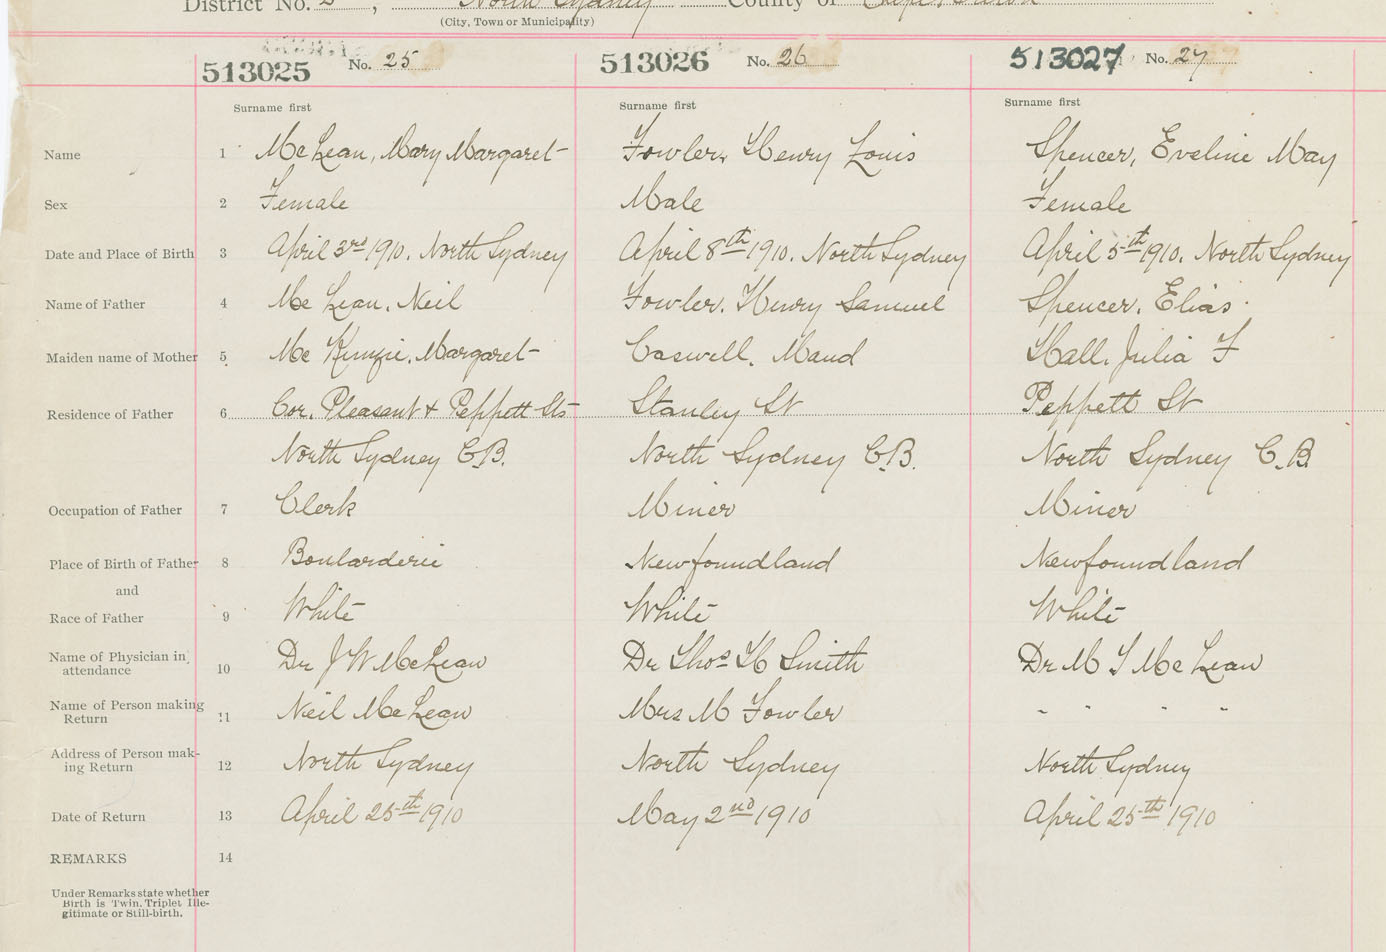 District No. 2, North Sydney County of Cape Breton
(City, Town or Municipality)
513025 No. 25 513026 No. 26 513027 No. 27
Surname first Surname first Surname first
Name 1 McLean, Mary Margaret Fowler, Henry Louis Spencer, Eveline May
Sex 2 Female Male Female
Date and Place of Birth 3 April 3rd 1910. North Sydney April 8th 1910. North Sydney April 5th 1910. North Sydney
Name of Father 4 McLean, Neil Fowler, Henry Samuel Spencer, Elias
Maiden name of Mother 5 McKinzie, Margaret Caswell, Maud Hall, Julia F
Residence of Father 6 Cor. Pleasant & Peppett Sts Stanley St Peppett St
North Sydney C.B. North Sydney C.B. North Sydney C.B.
Occupation of Father 7 Clerk Miner Miner
Place of Birth of Father 8 Boularderie Newfoundland Newfoundland
and
Race of Father 9 White White White
Name of Physician in attendance 10 Dr J W McLean Dr Thos H Smith Dr M T McLean
Name of Person making Return 11 Neil McLean Mrs M Fowler " " " "
Address of Person mak-ing Return 12 North Sydney North Sydney North Sydney
Date of Return 13 April 25th 1910 May 2nd 1910 April 25th 1910
REMARKS 14
Under Remarks state whether
Birth is Twin, Triplet Ille-
gitimate or Still-birth.